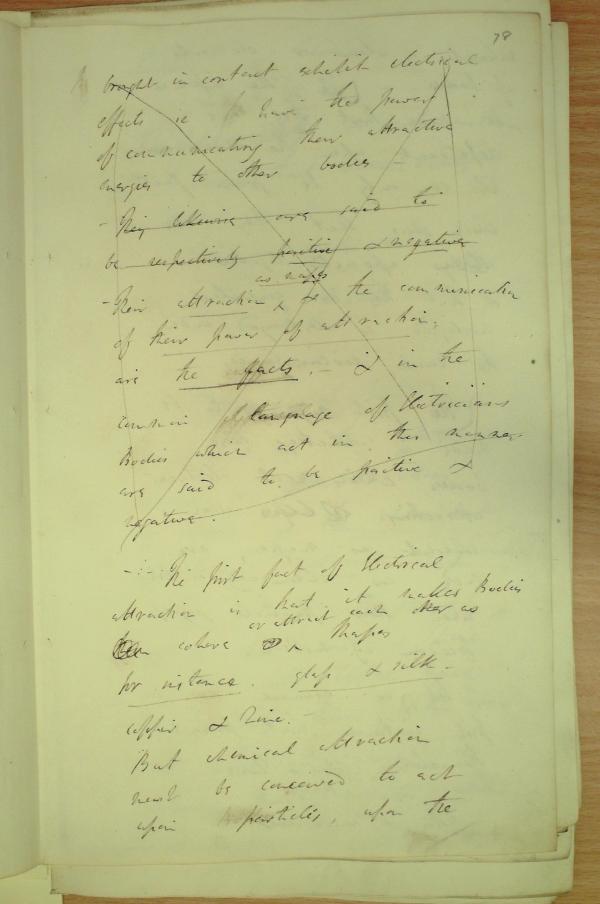 78
brought in contact exhibit electrical
effects ie have the power
of communicating their attractive
energies to other bodies -
- They likewise are said to
be respectively positive & negative
as masses
- Their attraction & the communication
of their power of attraction,
are the facts. - & in the
common language of Electricians
Bodies which act in this manner
are said to be positive &
negative.
- The first fact of Electrical
attraction is that it makes Bodies
or attract each other as
cohere Masses
for instance. glass & silk -
copper & Zinc. -
But chemical attraction
must be conceived to act
upon particles, upon the